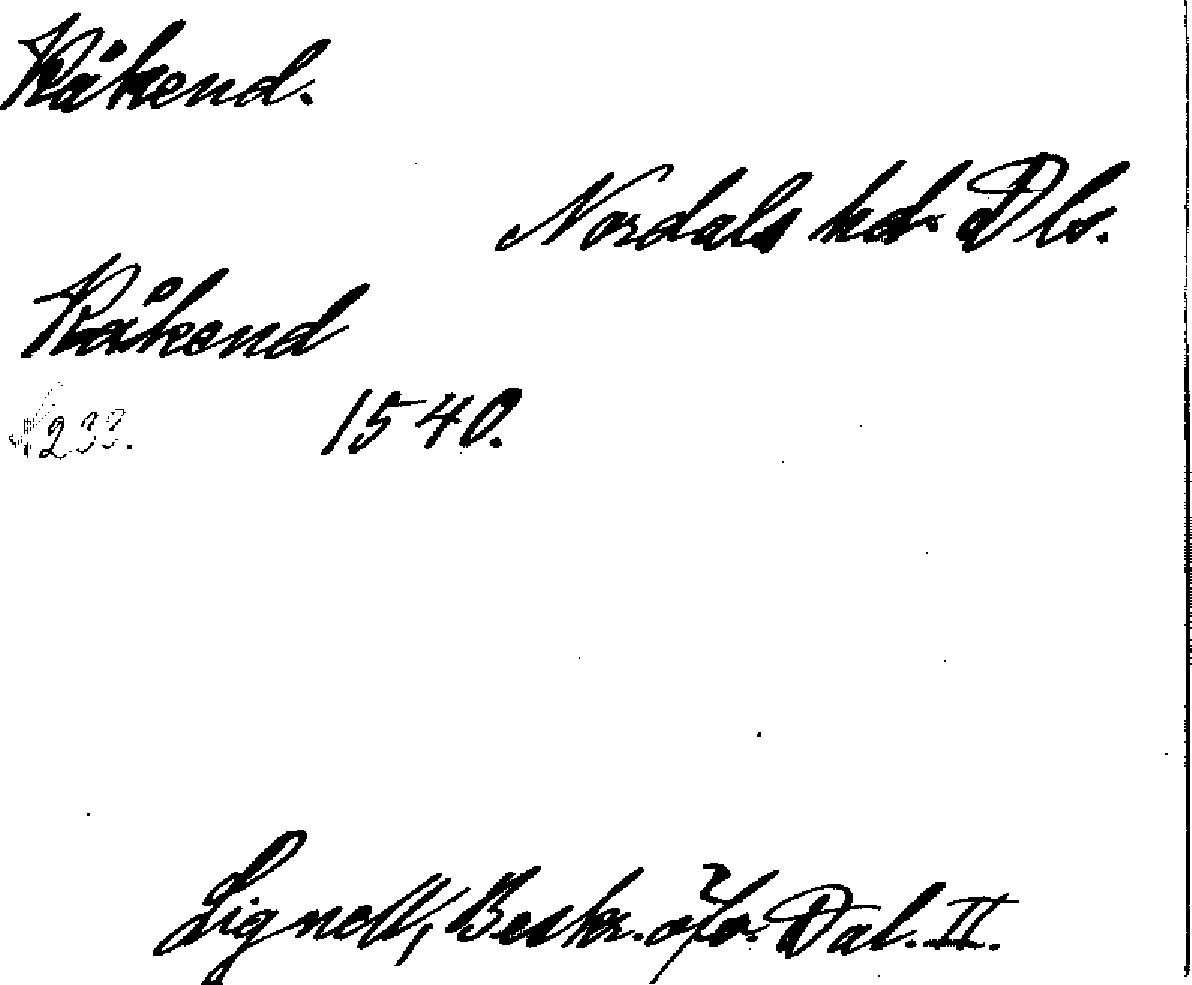 Råkend.
Nordals hd. Dls.
Råkend
S 233. 1540.
Lignell, Beskr. öfv. Dal. II.